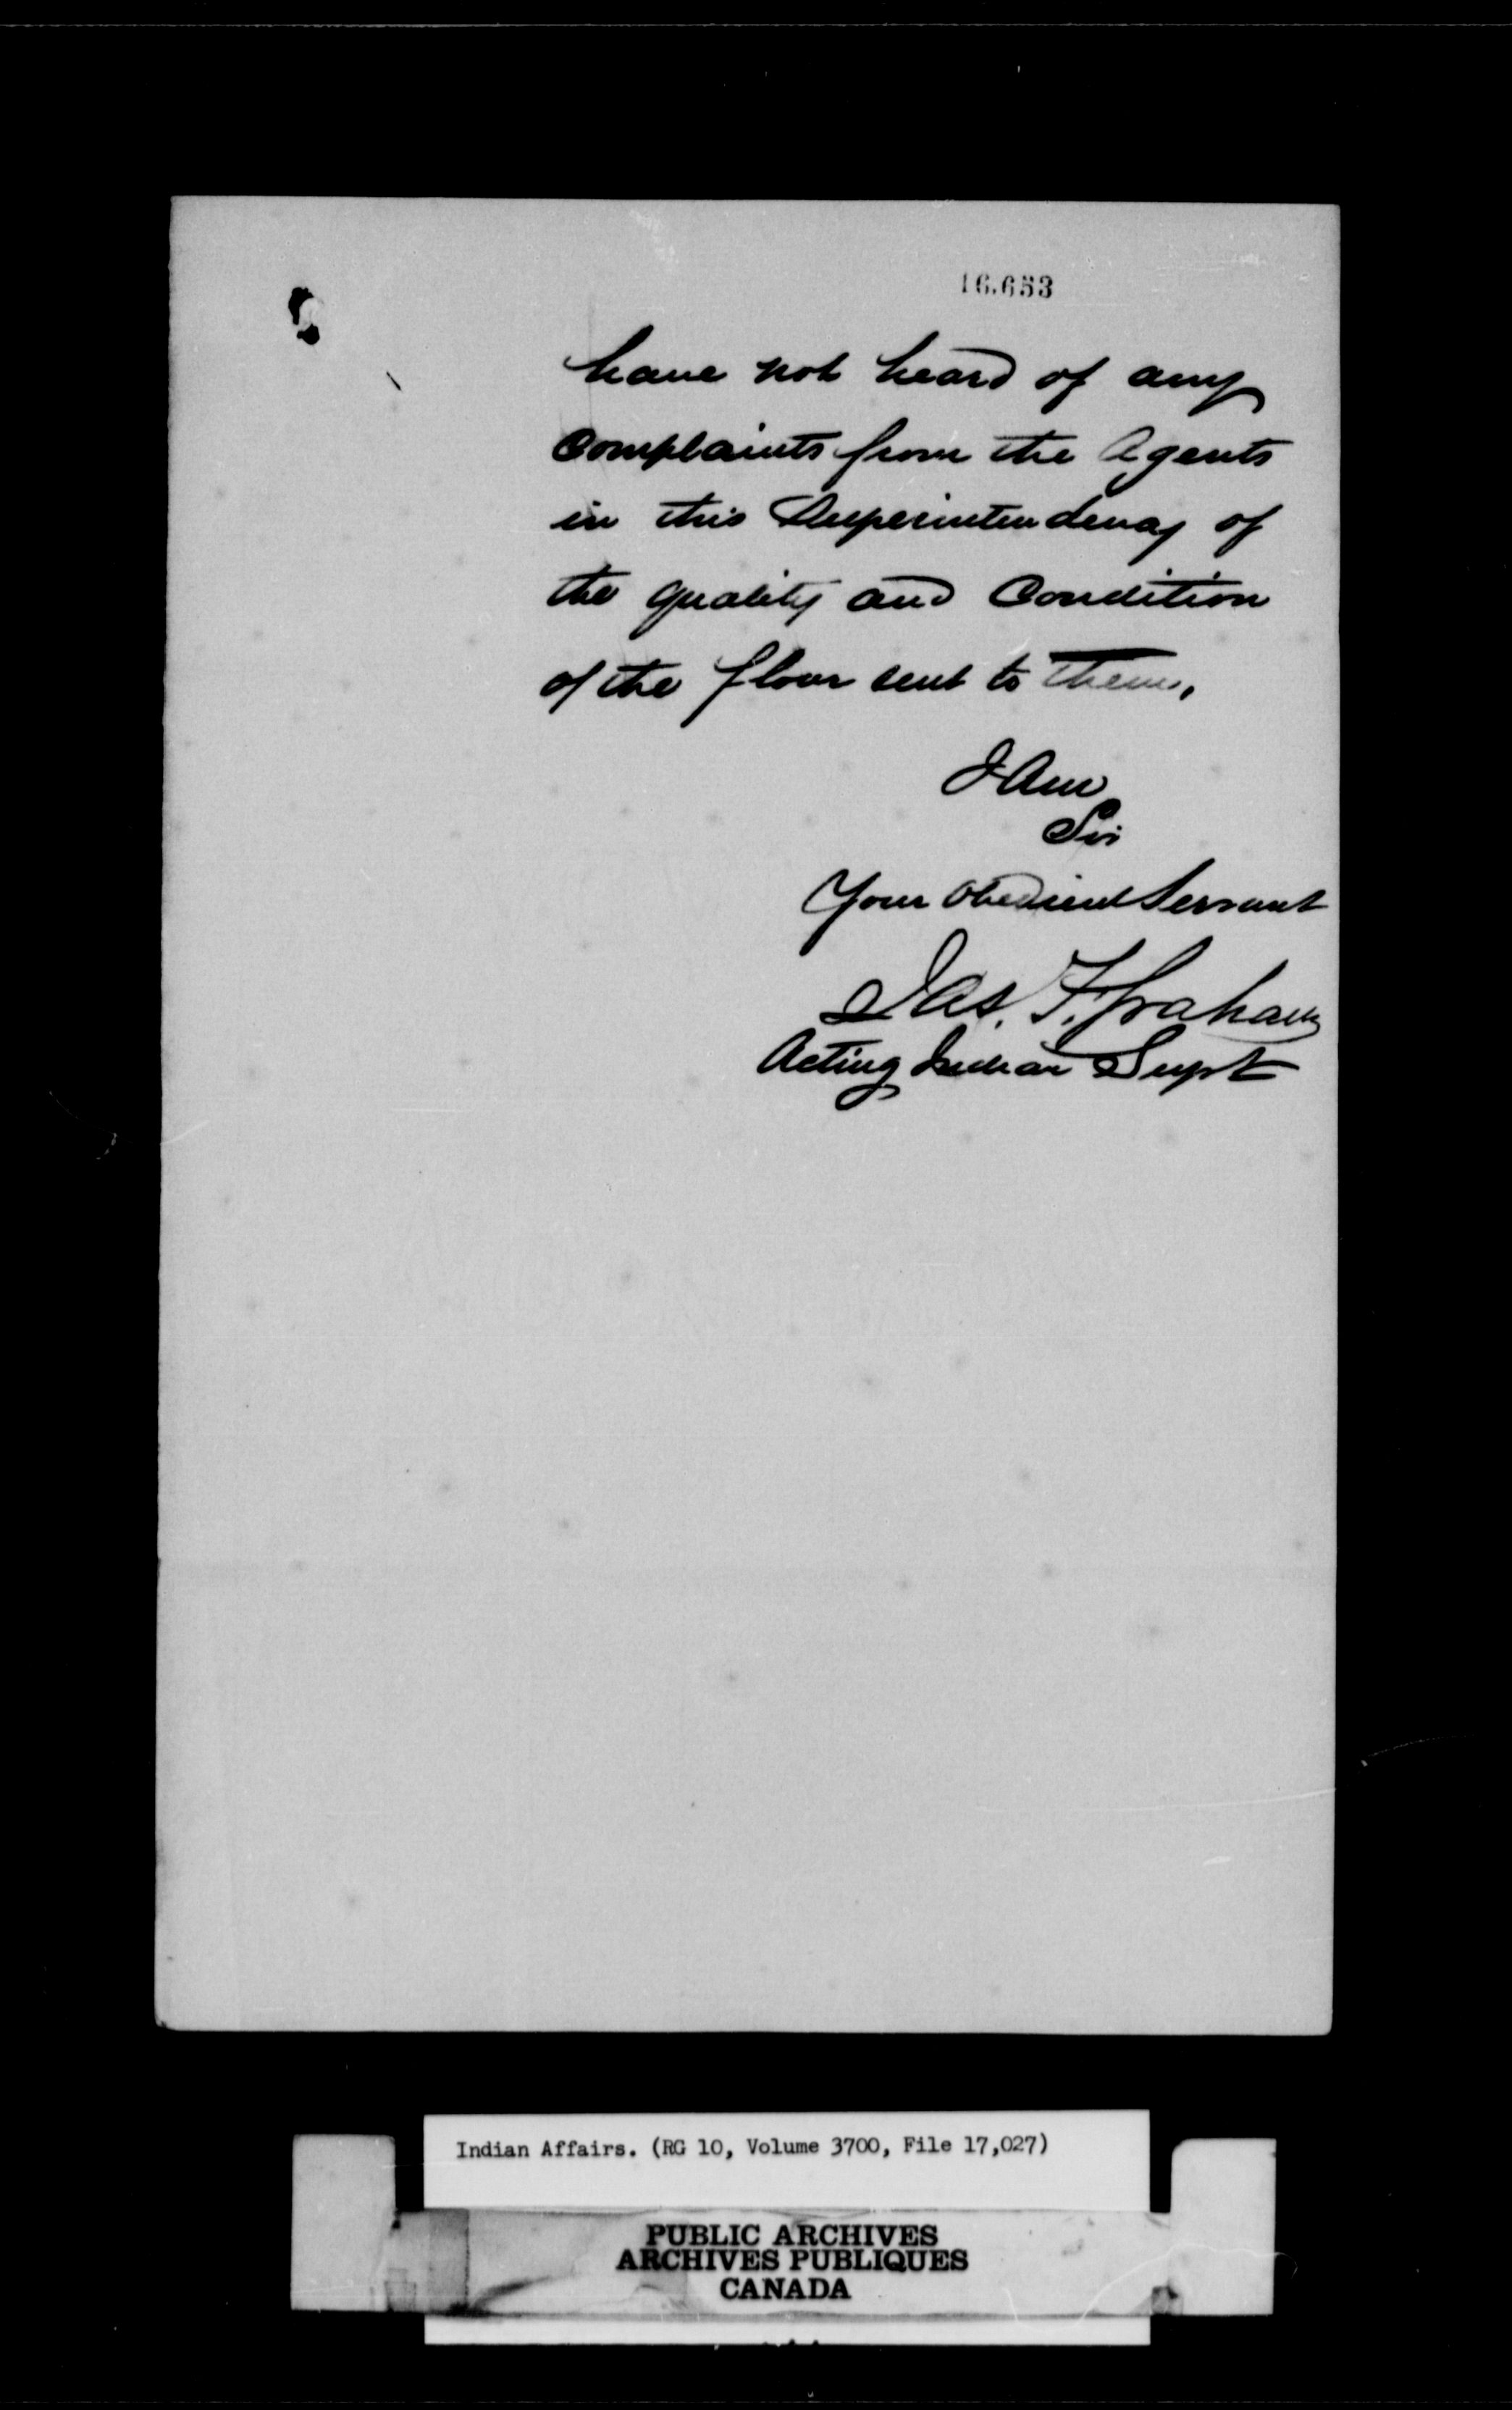 16.653
have not heard of any
Complaints from the Agents
in this Superintendency of
the quality and Condition
of the flour sent to them.
I Am
Sir
Your Obedient Servant
Jas. F. Graham
Acting Indian Supt
Indian Affairs. (RG 10, Volume 3700, File 17,027)
PUBLIC ARCHIVES
ARCHIVES PUBLIQUES
CANADA